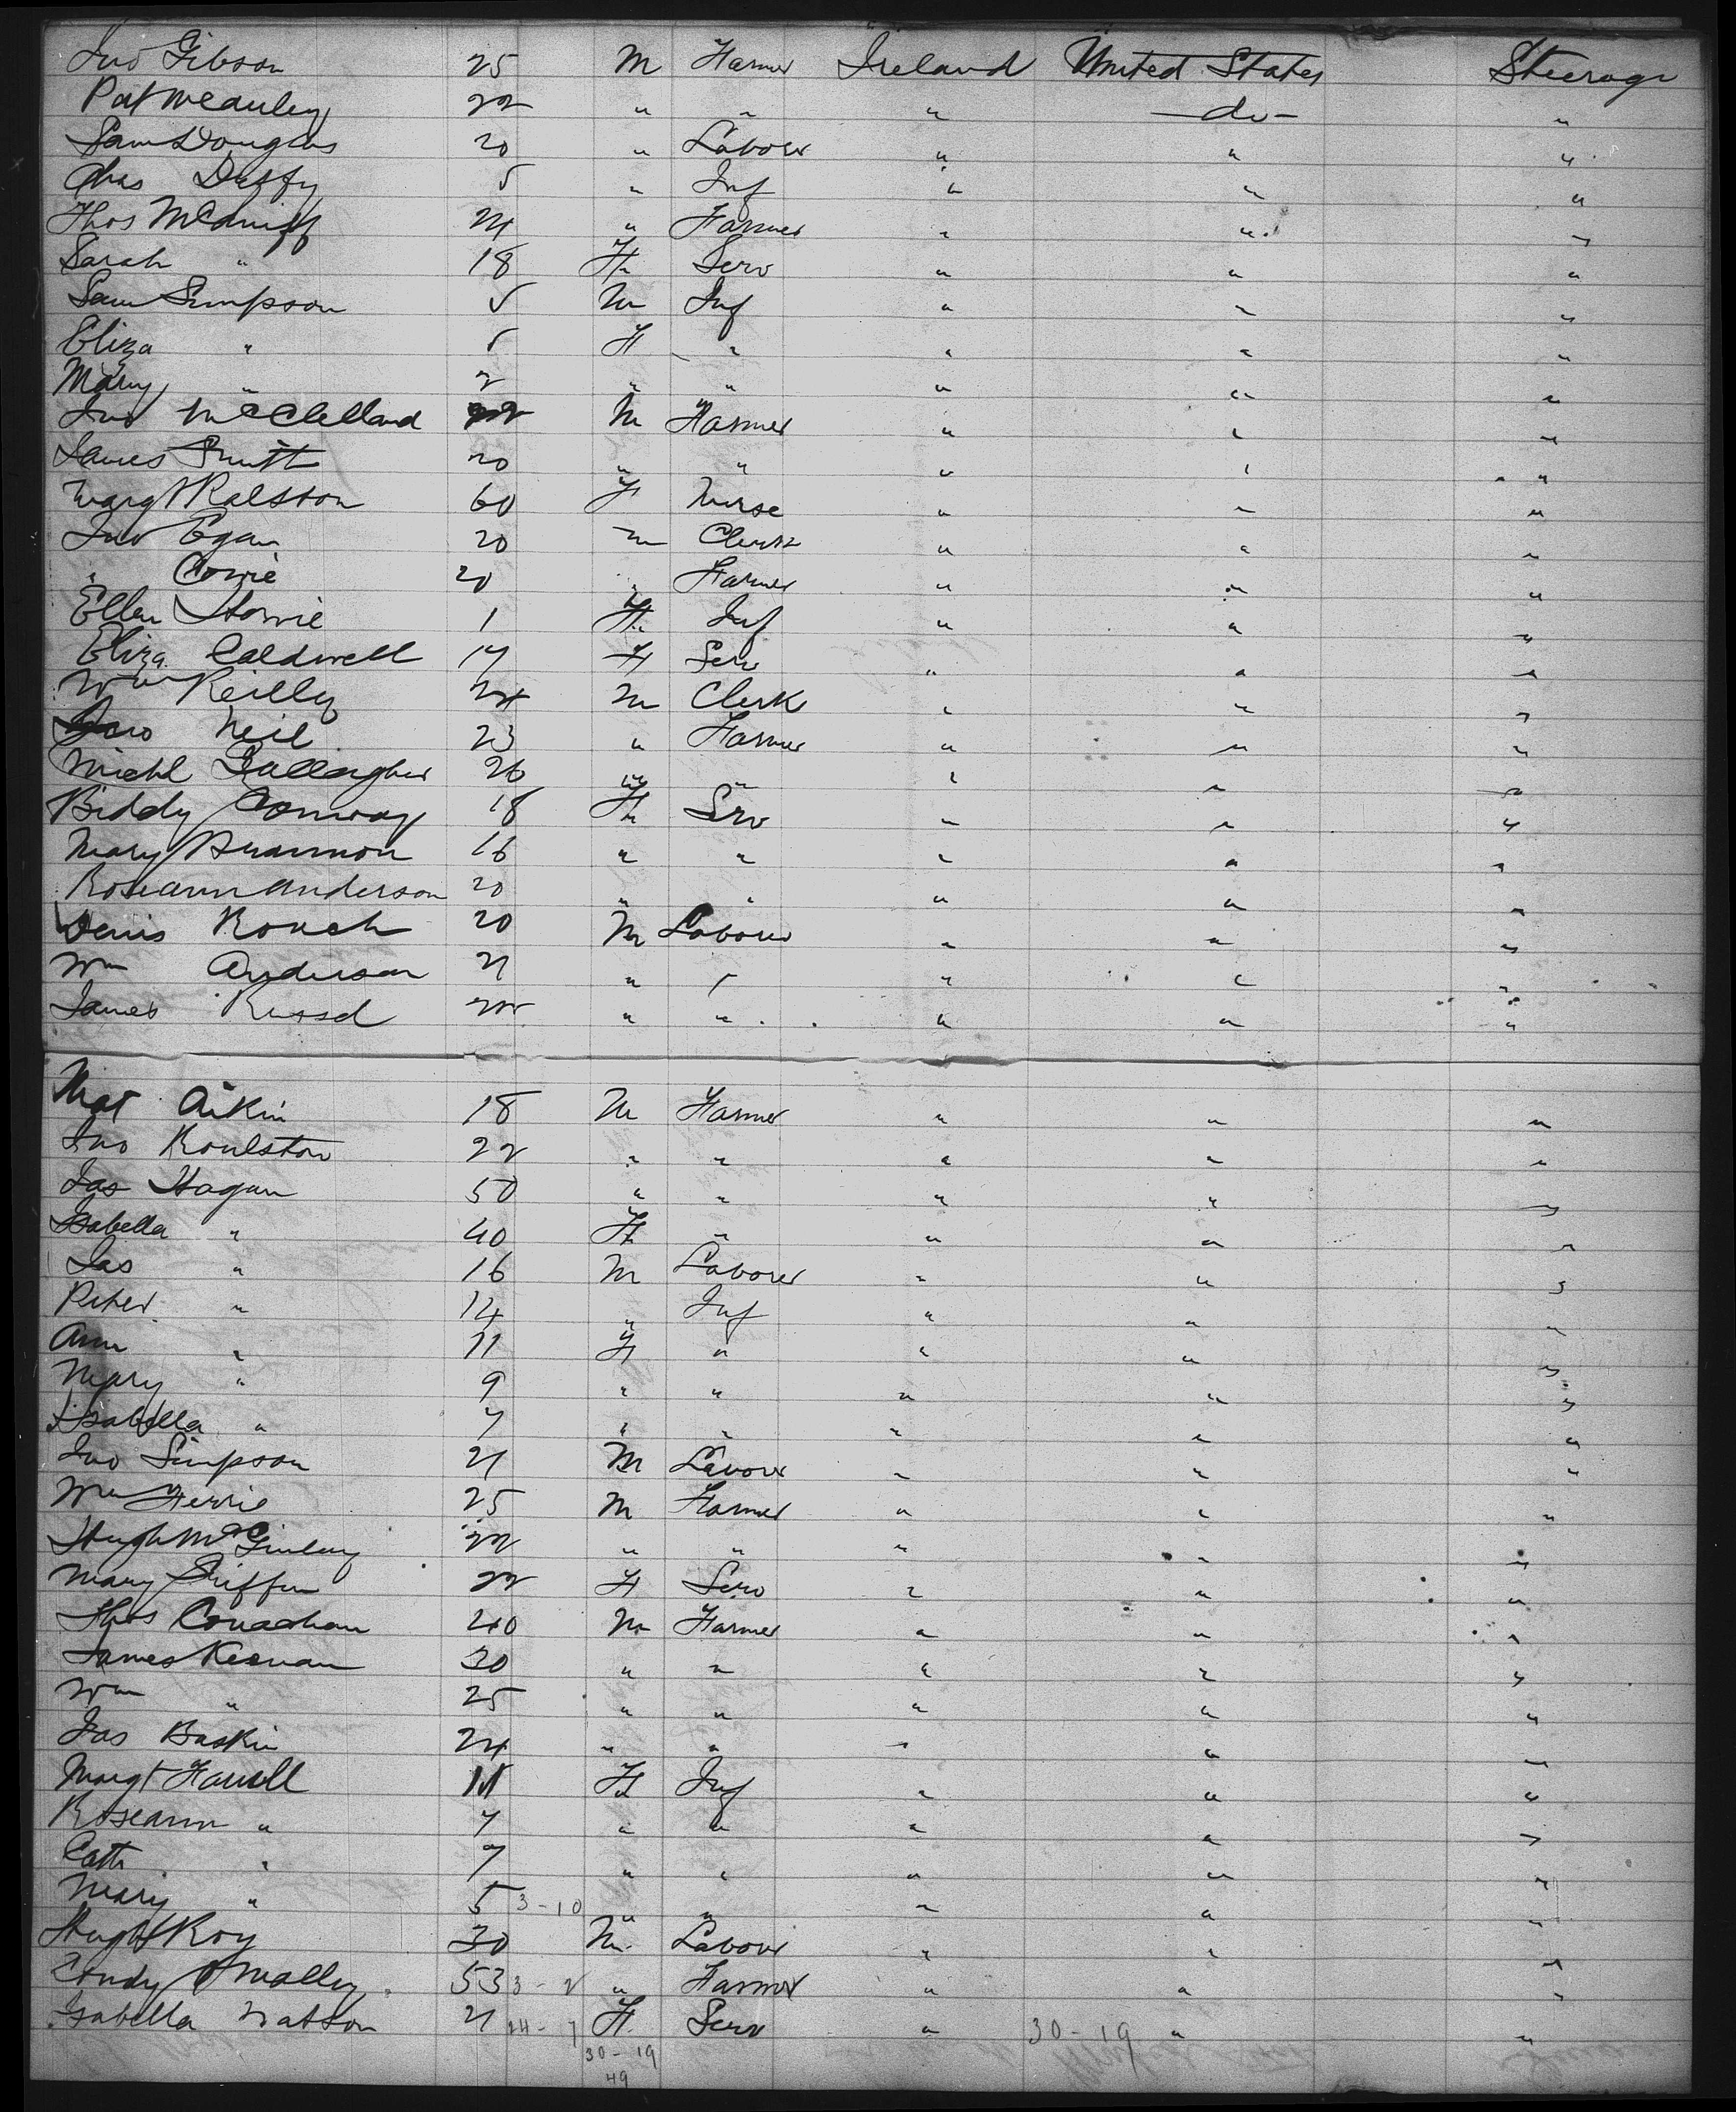 Jno Gibson 25 M Farmer Ireland United States Steerage
Pat McAuley 22 " " " —do— "
Sam Douglas 20 " Laborer " " "
Chas Duffy 5 " Inf " " "
Thos 24 " Farmer " " "
Sarah " 18 F Serv " " "
Sam Simpson 5 M Inf " " "
Eliza " F " " " "
Mary " 2 " " " " "
Jno McClelland 22 M Farmer " " "
James Smith 20 " " " " "
Margt Ralston 60 F Nurse " " "
Jno Egan 20 M Clerk " " "
" Cowie 20 " Farmer " " "
Ellen Howie 1 F Inf " " "
Eliza Caldwell 17 F Serv " " "
Wm Reilly 24 M Clerk " " "
Jno Neil 23 " Farmer " " "
Michl Gallagher 26 " " " " "
Biddy Conway 18 F Serv " " "
Mary Brannon 16 " " " " "
Roseann Anderson 20 " " " " "
Denis Roach 20 M Laborer " " "
Wm Anderson 21 " " " " "
James 22 " " " " "
Mat Aikin 18 M Farmer " " "
Jno Roulston 22 " " " " "
Jas Hagan 50 " " " " "
Isabella " 40 F " " " "
Jas " 16 M Laborer " " "
Peter " 14 " Inf " " "
Ann " 11 F " " " "
Mary " 9 " " " " "
Isabella " 7 " " " " "
Jno Simpson 21 M Laborer " " "
Wm Ferrie 25 M Farmer " " "
Hugh McGinley 22 " " " " "
Mary Griffin 22 F Serv " " "
Thos Conaghan 40 M Farmer " " "
James Keenan 30 " " " " "
Wm " 25 " " " " "
Jas Baskin 24 " " " " "
Margt 11 F Inf " " "
Roseann " 7 " " " " "
Cath " 7 " " " " "
Mary " 5 3-10 " " " " "
Hugh Roy 30 M Laborer " " "
Condy O'Malley 53 3-2 " Farmer " " "
Isabella Watson 21 24-7 F Serv " 30-19 " "
30-19
49